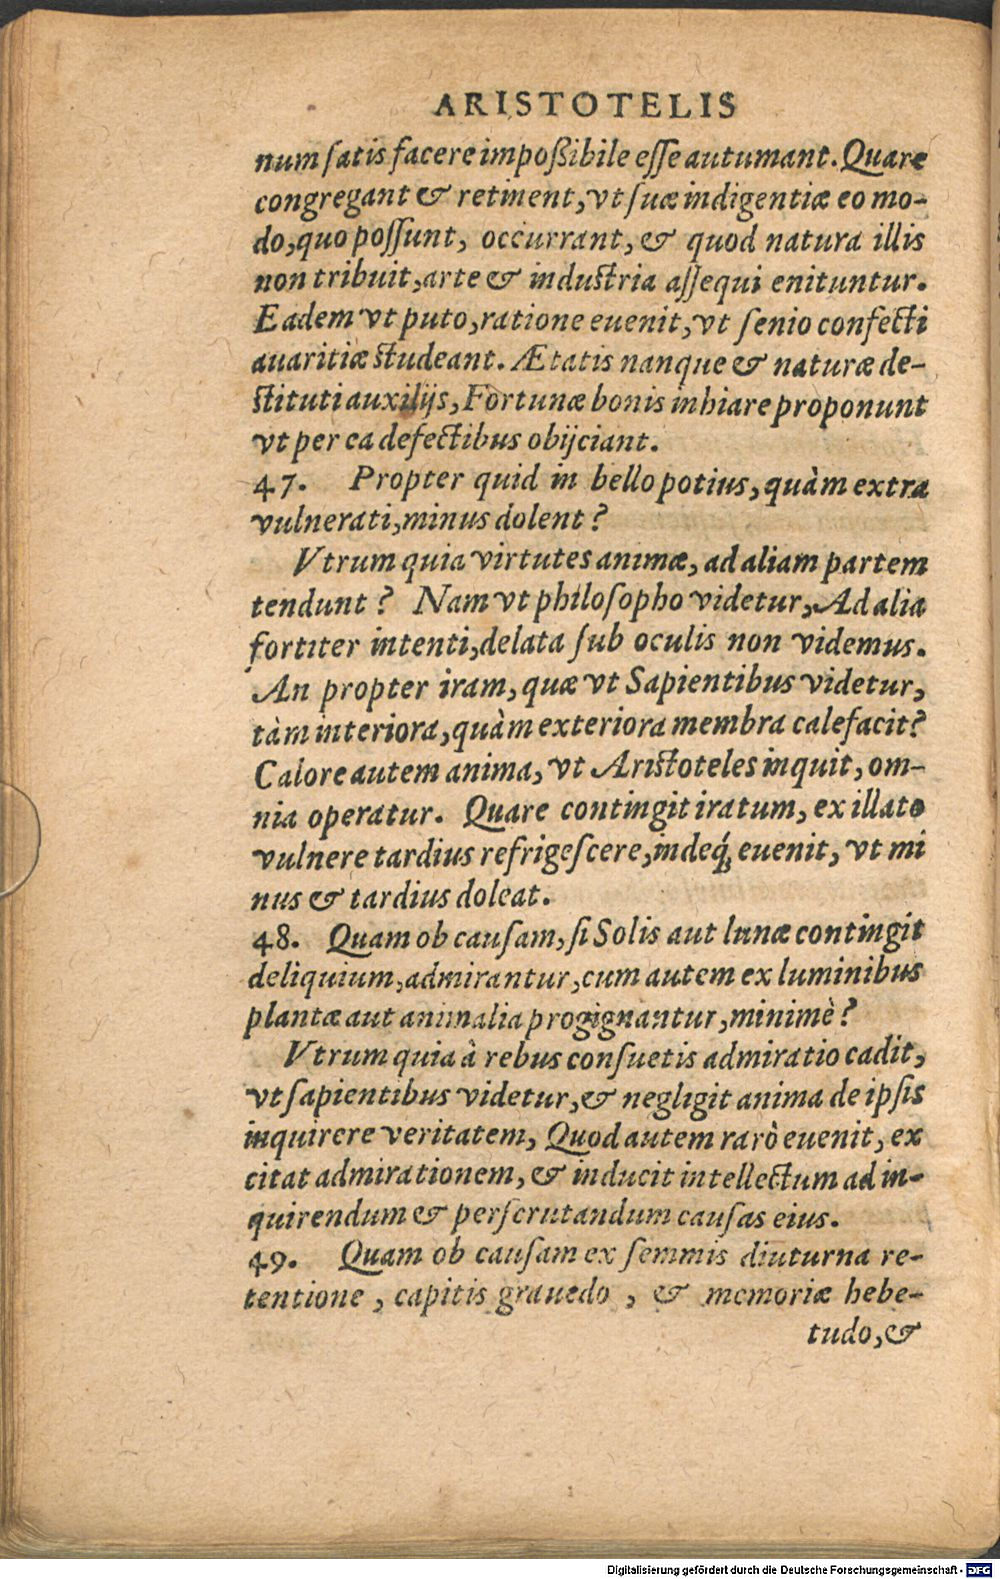 ARISTOTELIS
num ſatis facere impoßibile eſſe autumant. Quare
congregant & retinent, vt ſuæ indigentiæ eo mo-
do, quo poſſunt, occurrant, & quod natura illis
non tribuit, arte & induſtria aſſequi enituntur.
Eadem vt puto, ratione euenit, vt ſenio confecti
auaritiæ ſtudeant. Ætatis nanque & naturæ de-
ſtituti auxilijs, Fortunæ bonis inhiare proponunt
vt per ea defectibus obijciant.
47. Propter quid in bello potius, quàm extra
vulnerati, minus dolent?
Vtrum quia virtutes animæ, ad aliam partem
tendunt? Nam vt philoſopho videtur, Ad alia
fortiter intenti, delata ſub oculis non videmus.
An propter iram, quæ vt Sapientibus videtur,
tàm interiora, quàm exteriora membra calefacit?
Calore autem anima, vt Ariſtoteles inquit, om-
nia operatur. Quare contingit iratum, ex illato
vulnere tardius refrigeſcere, indeq́; euenit, vt mi
nus & tardius doleat.
48. Quam ob cauſam, ſi Solis aut lunæ contingit
deliquium, admirantur, cum autem ex luminibus
plantæ aut animalia progignantur, minimè?
Vtrum quia à rebus conſuetis admiratio cadit,
vt ſapientibus videtur, & negligit anima de ipſis
inquirere veritatem, Quod autem rarò euenit, ex
citat admirationem, & inducit intellectum ad in-
quirendum & perſcrutandum cauſas eius.
49. Quam ob cauſam ex ſeminis diuturna re-
tentione, capitis grauedo, & memoriæ hebe-
tudo, &
Digitalisierung gefördert durch die Deutsche Forschungsgemeinschaft - DFG